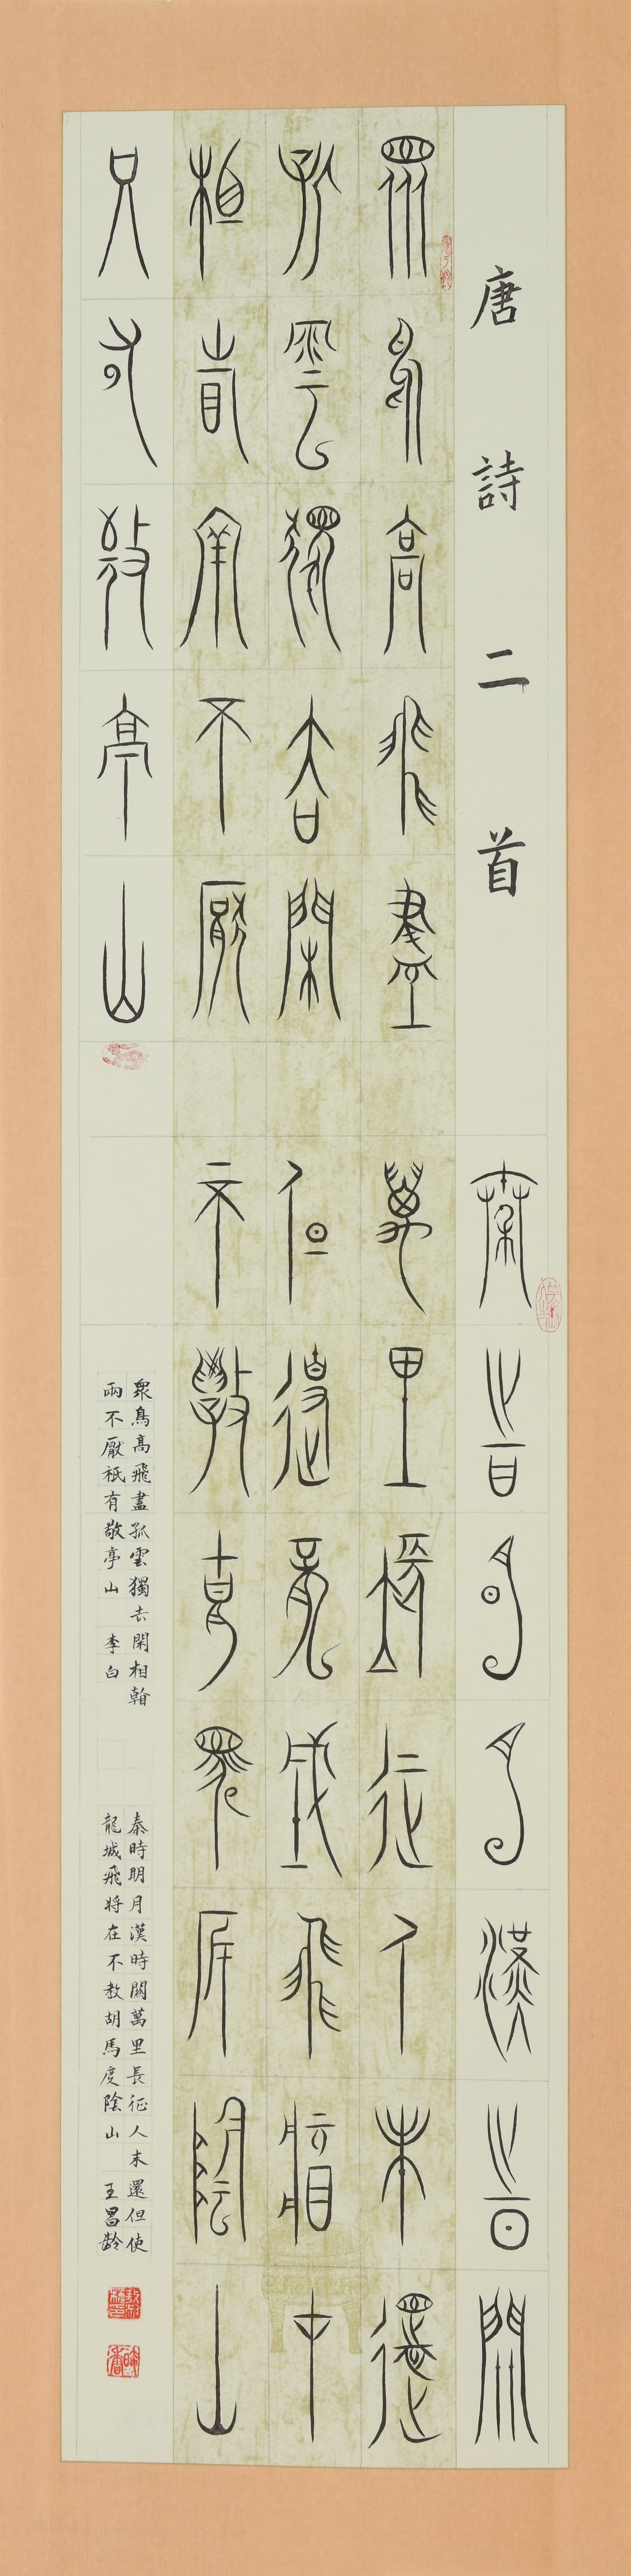 唐詩二首
衆鳥高飛盡
孤雲獨去閑
相看兩不厭
只有敬亭山
秦時明月漢時關
萬里長征人未還
但使龍城飛將在
不教胡馬度陰山
衆鳥高飛盡孤雲獨去閑相翰
兩不厭祇有敬亭山 李白
秦時明月漢時關萬里長征人未還但使
龍城飛將在不教胡馬度陰山 王昌齡